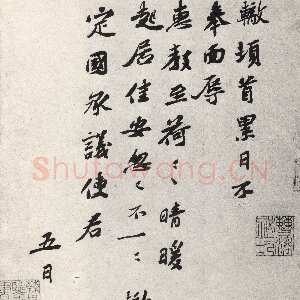 轍頓首累日不
奉面辱
惠教至荷〻晴暖
起居佳安怱〻不一〻轍
定國承議使君
五日
Shufawang.CN